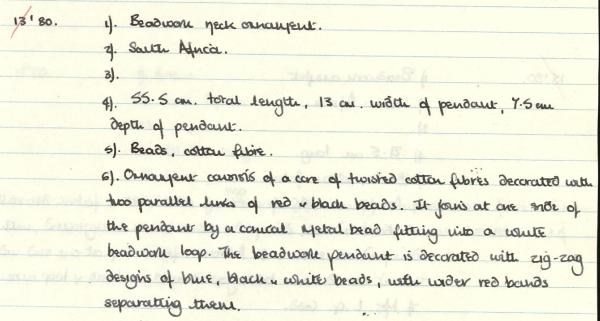 13'80. 1). Beadwork neck ornament.
2). South Africa.
3).
4). 55.5 cm. total length, 13 cm. width of pendant, 7.5 cm
depth of pendant.
5). Beads, cotton fibre.
6). Ornament consists of a core of twisted cotton fibres decorated with
two parallel lines of red & black beads. It joins at one side of
the pendant by a conical metal bead fitting into a white
beadwork loop. The beadwork pendant is decorated with zig-zag
designs of blue, black & white beads, with wider red bands
separating them.